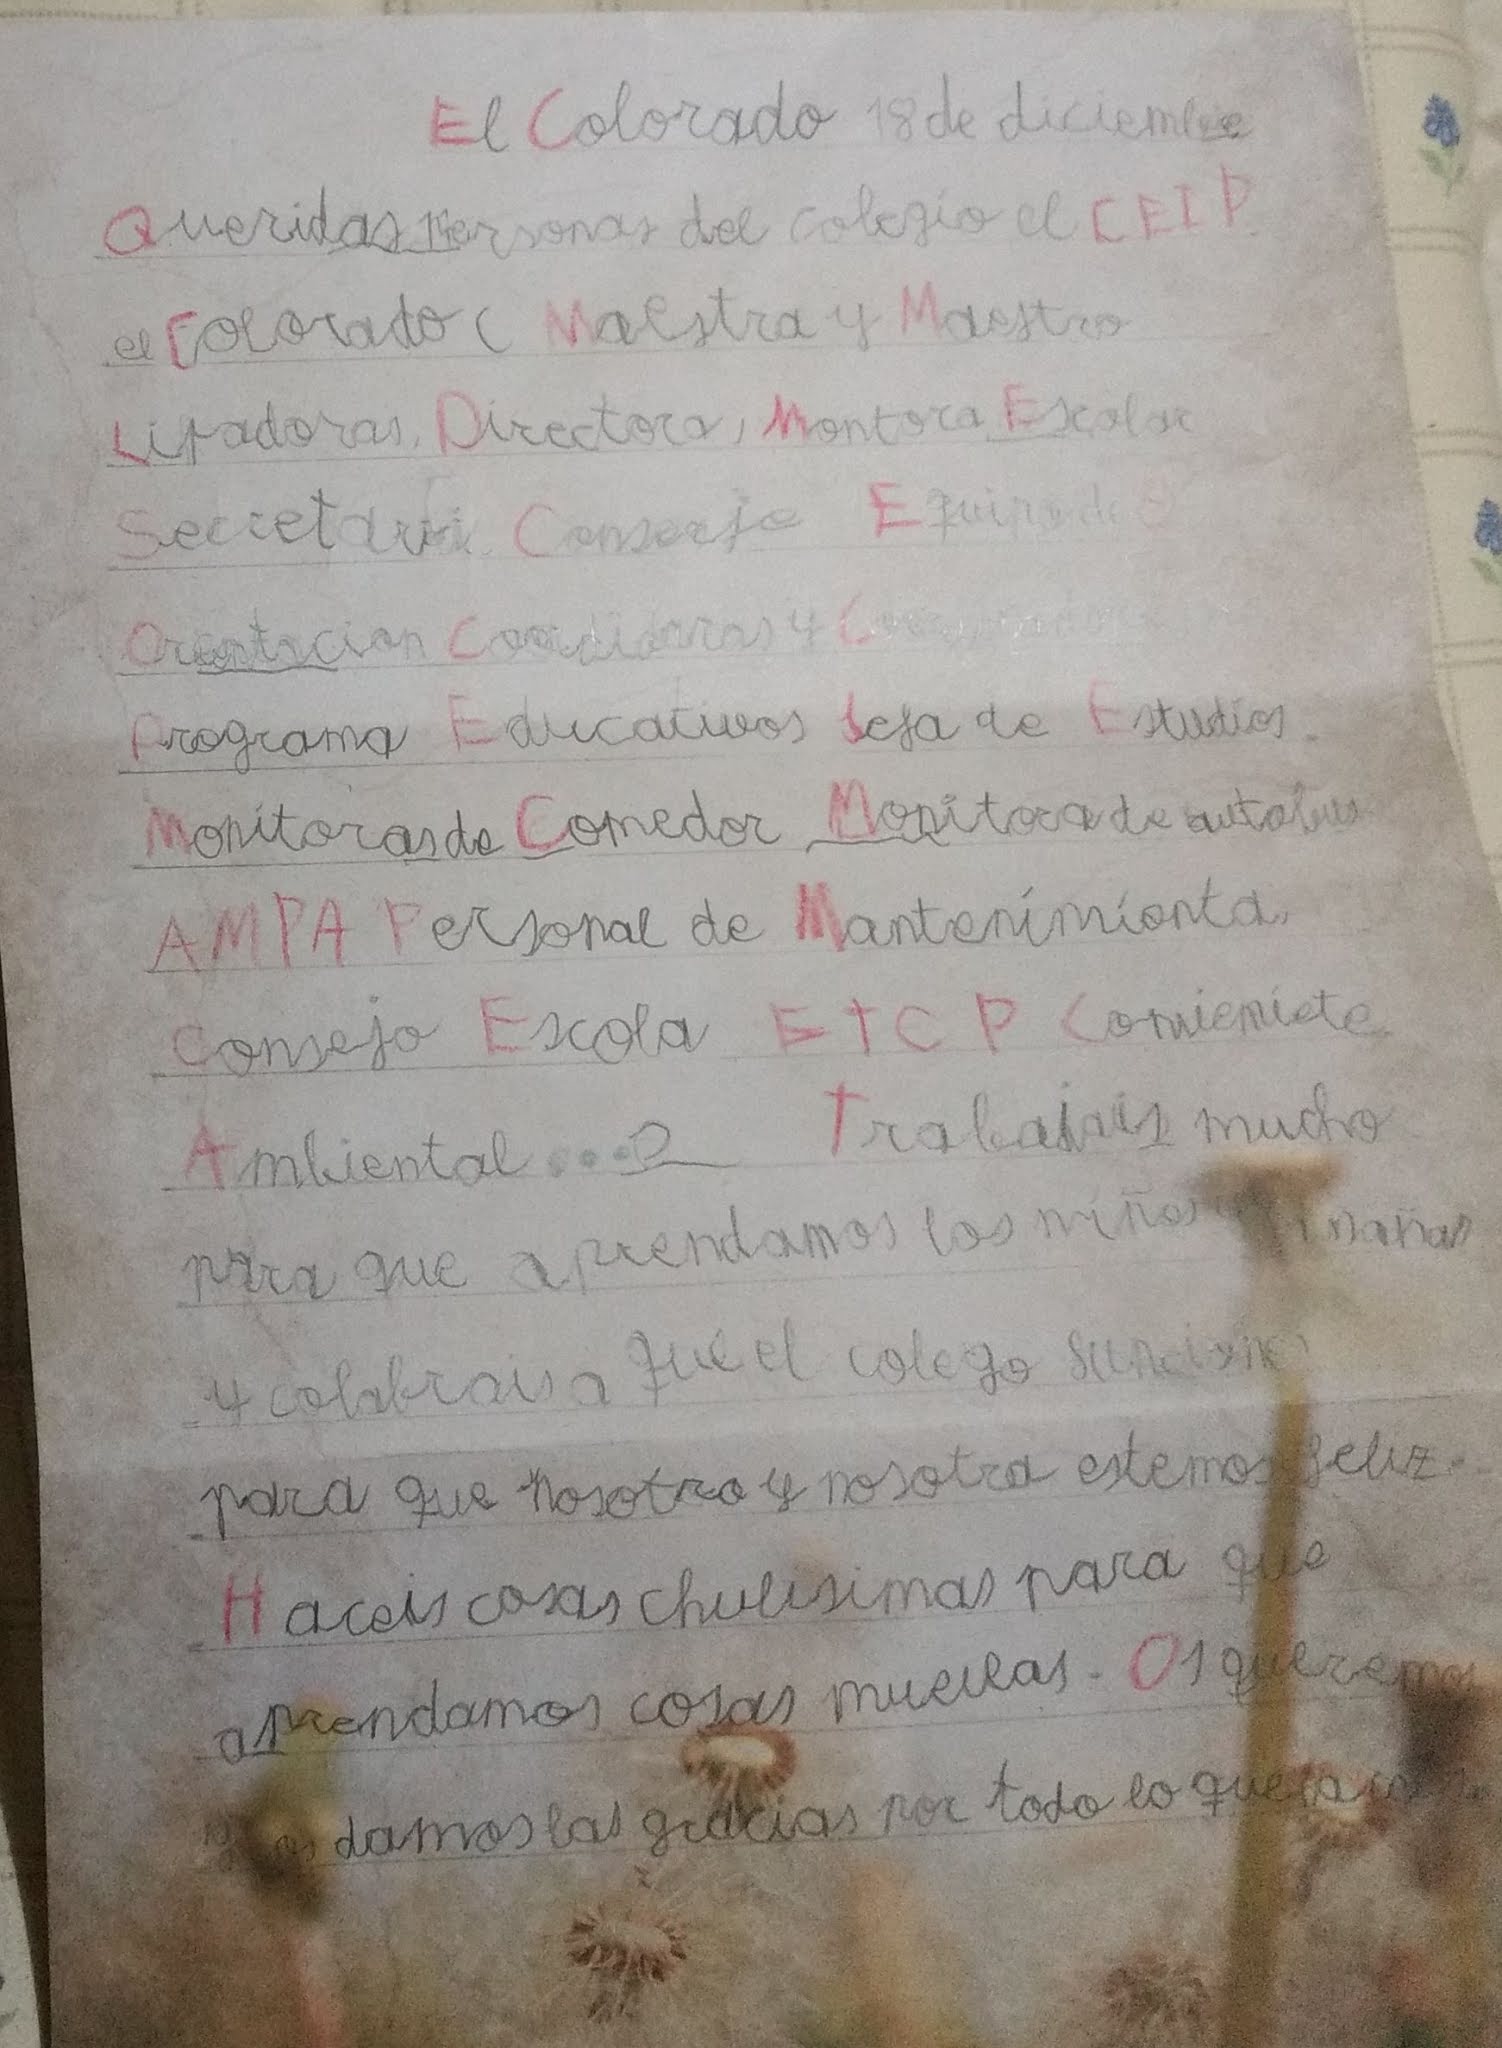 El Colorado 18 de diciembre
Queridas Personas del colegio el CEIP.
el Colorado ( Maestra y Maestro
Lipadoras, Directora, Montora Escolar
Secretari. Conserje Equipo de
Orentacion Coordidoras y
Programa Educativos Jefa de Estudios.
Monitoras de Comedor Monitora de autobus
AMPA Personal de Mantenimionta,
Consejo Escola ETCP Comieniete
Ambiental ...) Trabajais mucho
para que aprendamos los niños niañas
y colabrais a que el colego funcione
para que nosotro y nosotra estemos feliz.
Haceis cosas chulisimas para que
aprendamos cosas muevas. Os queremos
y os damos las gracias por todo lo que